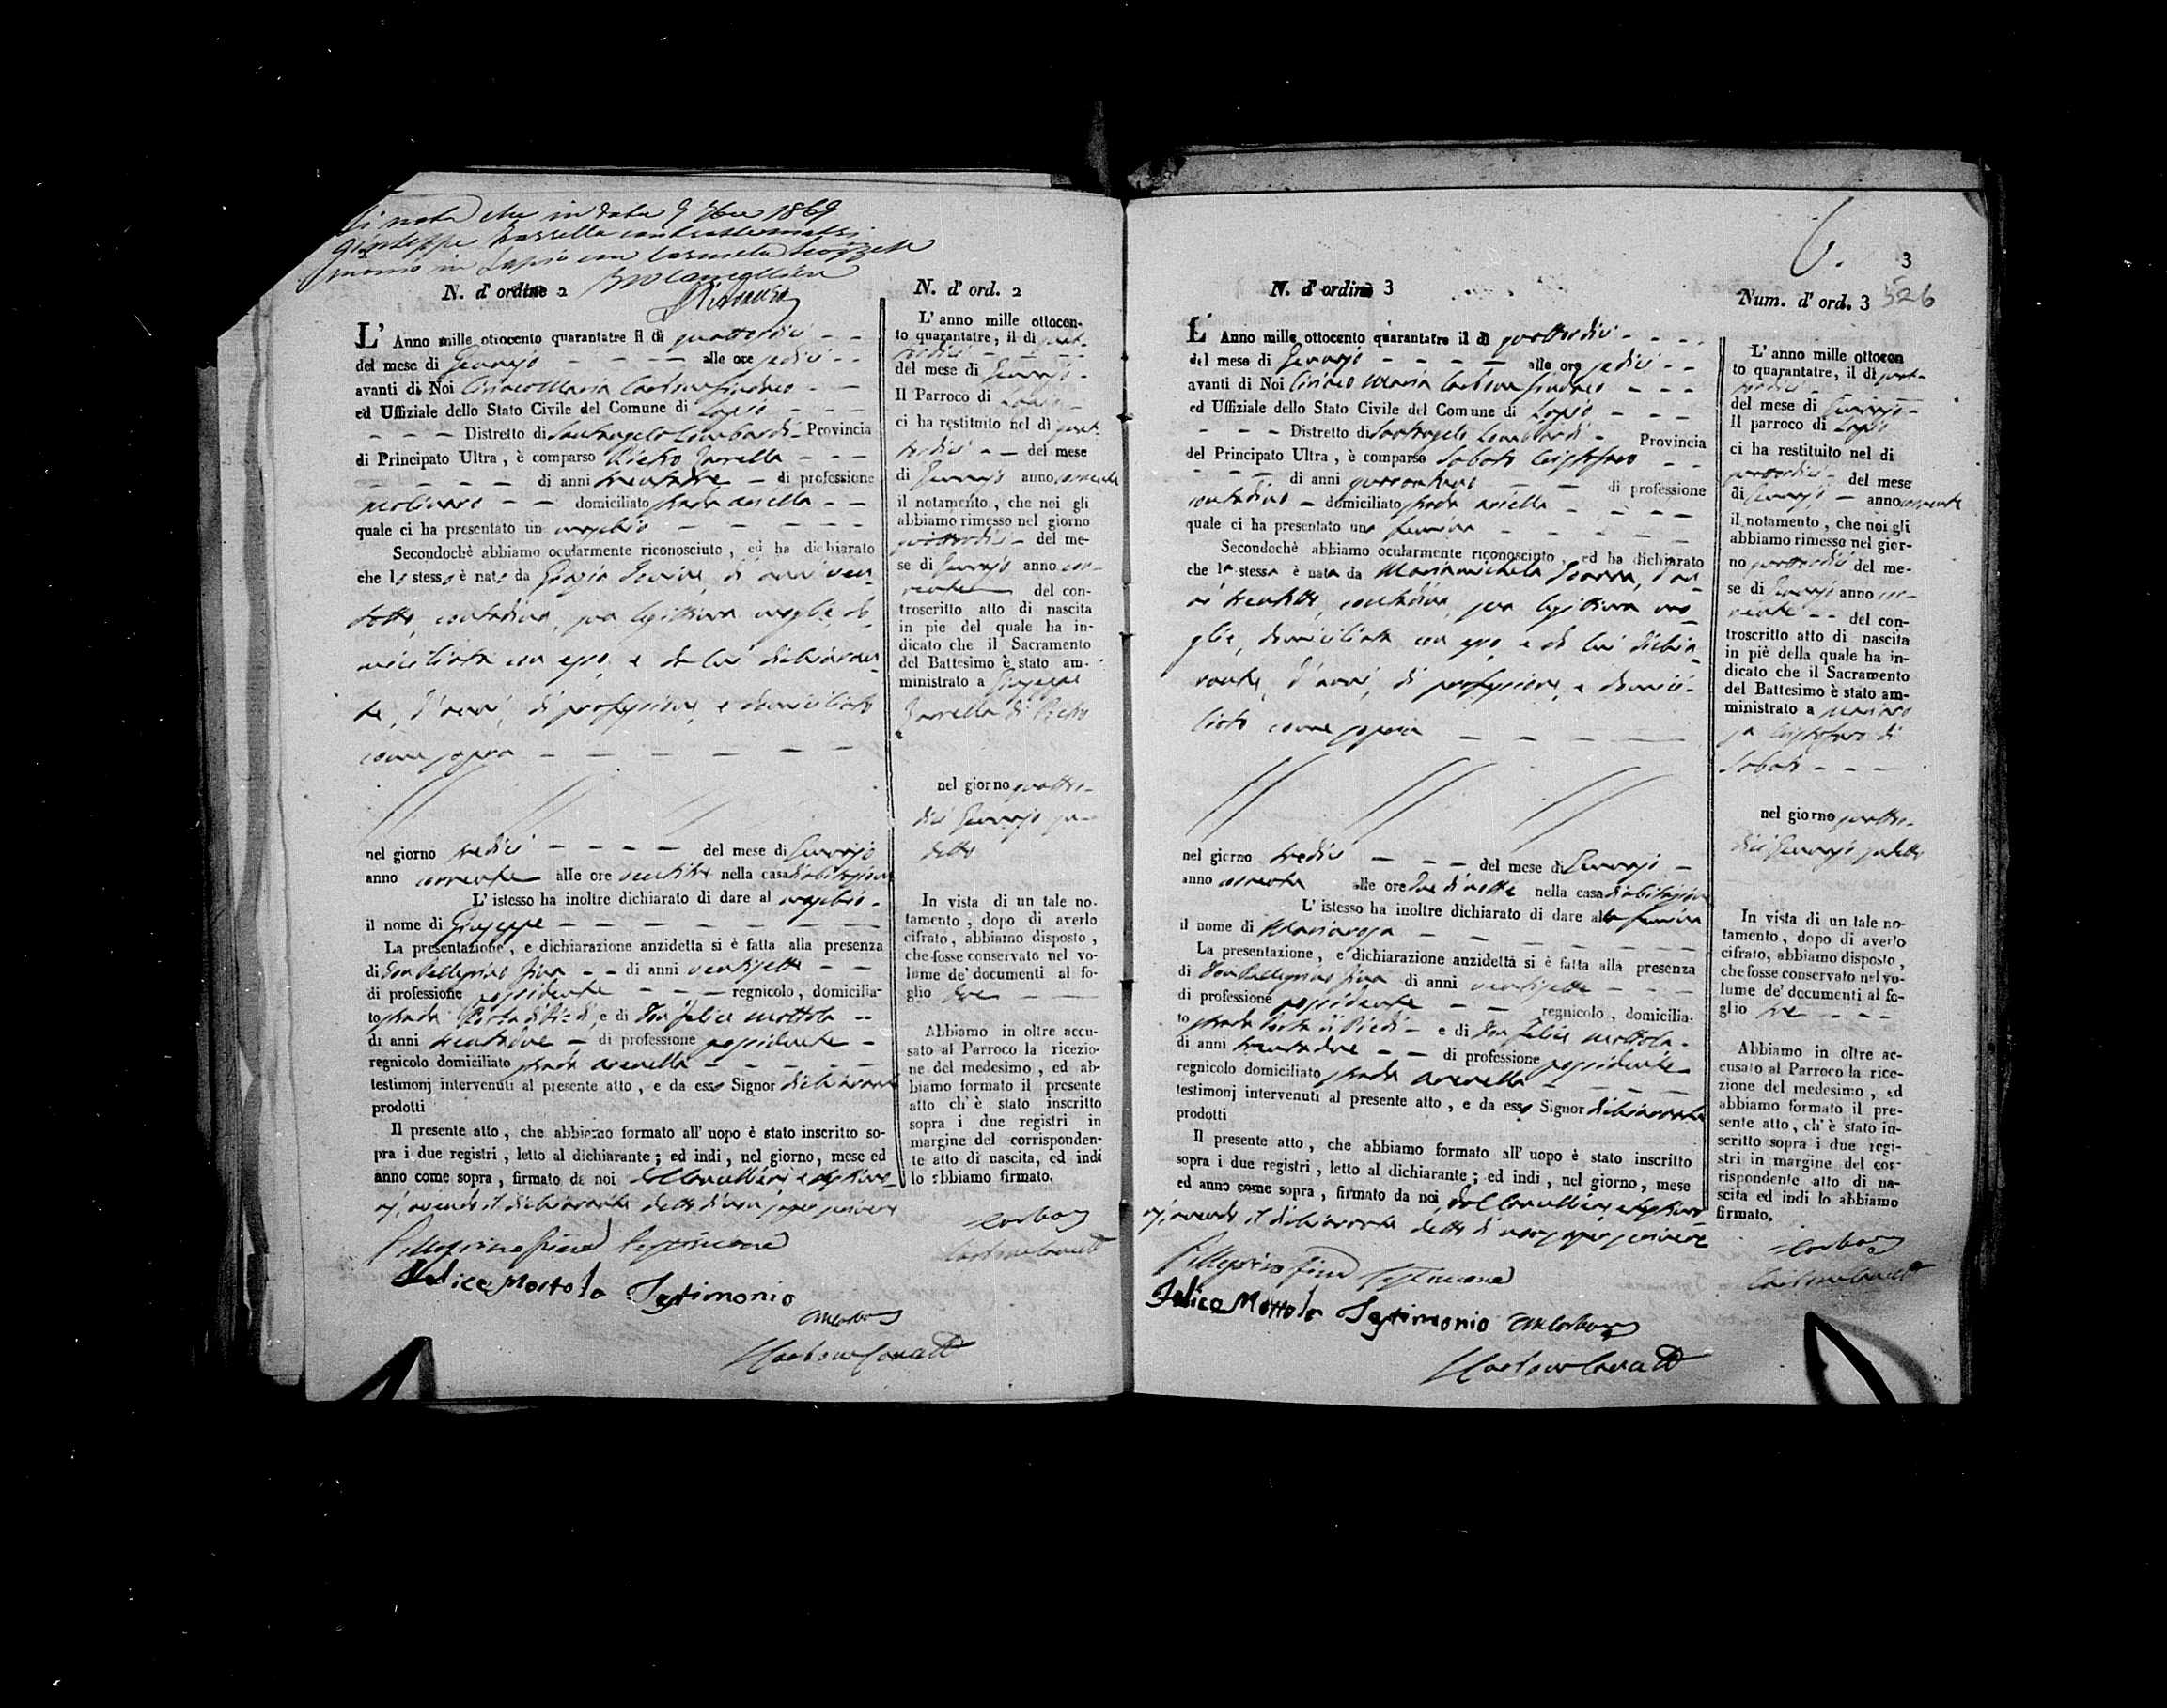 Si nota che in data 9 1869
Giuseppe Zarrella
in Lapio con Carmela
N. d'ordine 2
L' Anno mille ottocento quarantatre il dì quattordici
del mese di Gennajo alle ore sedici
avanti di Noi Ciriaco Maria Carbone Sindaco
ed Uffiziale dello Stato Civile del Comune di Lapio
Distretto di Santangelo Lombardi Provincia
di Principato Ultra, è comparso Pietro Zarrella
di anni trentatre di professione
molinaro domiciliato strada
quale ci ha presentato un maschio
Secondochè abbiamo ocularmente riconosciuto, ed ha dichiarato
che lo stesso è nato da Grazia di anni ven-
totto, contadina, sua legittima moglie do-
miciliata con esso, e da lui dichiaran-
te, d'anni, di professione, e domiciliato
come sopra
nel giorno tredici del mese di Gennajo
anno corrente alle ore ventitre nella casa di abitazione
L'istesso ha inoltre dichiarato di dare al maschio
il nome di Giuseppe
La presentazione, e dichiarazione anzidetta si è fatta alla presenza
di Don Pellegrino di anni ventisette
di professione possidente regnicolo, domicilia-
to strada Porta di Piedi, e di Don Felice Mottola
di anni trentadue di professione possidente
regnicolo domiciliato strada Arenella
testimonj intervenuti al presente atto, e da esso Signor dichiarante
prodotti
Il presente atto, che abbiamo formato all'uopo è stato inscritto so-
pra i due registri, letto al dichiarante; ed indi, nel giorno, mese ed
anno come sopra, firmato da noi, dal Cancelliere e testimo-
nj, avendo il dichiarante detto di non saper scrivere
Pellegrino Testimone
Felice Mottola Testimonio
N. d' ord. 2
L' anno mille ottocen-
to quarantatre, il dì quat-
tordici
del mese di Gennajo
Il Parroco di Lapio
ci ha restituito nel dì quat-
tordici del mese
di Gennajo anno corrente
il notamento, che noi gli
abbiamo rimesso nel giorno
quattordici del me-
se di Gennajo anno cor-
rente del con-
troscritto atto di nascita
in piè del quale ha in-
dicato che il Sacramento
del Battesimo è stato am-
ministrato a Giuseppe
Zarrella di Pietro
nel giorno quattor-
dici Gennajo su-
detto
In vista di un tale no-
tamento, dopo di averlo
cifrato, abbiamo disposto,
che fosse conservato nel vo-
lume de' documenti al fo-
glio due
Abbiamo in oltre accu-
sato al Parroco la ricezio-
ne del medesimo, ed ab-
biamo formato il presente
atto ch'è stato inscritto
sopra i due registri in
margine del corrisponden-
te atto di nascita, ed indi
lo abbiamo firmato.
3
526
N. d'ordine 3
L' Anno mille ottocento quarantatre il dì quattordici
del mese di Gennajo alle ore sedici
avanti di Noi Ciriaco Maria Carbone Sindaco
ed Uffiziale dello Stato Civile del Comune di Lapio
Distretto di Santangelo Lombardi Provincia
del Principato Ultra, è comparso Sabato Cristofaro
di anni di professione
contadino domiciliato strada
quale ci ha presentato una femina
Secondochè abbiamo ocularmente riconosciuto, ed ha dichiarato
che la stessa è nata da Mariamichela d'an-
ni contadina, sua legittima mo-
glie, domiciliata con esso, e da lui dichia-
rante, d'anni, di professione, e domici-
liato come sopra
nel giorno tredici del mese di Gennajo
anno corrente alle ore due di notte nella casa di abitazione
L'istesso ha inoltre dichiarato di dare alla femina
il nome di Mariarosa
La presentazione, e dichiarazione anzidetta si è fatta alla presenza
di Don Pellegrino di anni ventisette
di professione possidente regnicolo, domicilia-
to strada Porta di Piedi e di Don Felice Mottola
di anni trentadue di professione possidente
regnicolo domiciliato strada Arenella
testimonj intervenuti al presente atto, e da esso Signor dichiarante
prodotti
Il presente atto, che abbiamo formato all'uopo è stato inscritto
sopra i due registri, letto al dichiarante; ed indi, nel giorno, mese
ed anno come sopra, firmato da noi, dal Cancelliere e testimo-
nj, avendo il dichiarante detto di non saper scrivere
Pellegrino Testimone
Felice Mottola Testimonio
Num. d' ord. 3
L' anno mille ottocen
to quarantatre, il dì quat-
tordici
del mese di Gennajo
Il parroco di Lapio
ci ha restituito nel di
quattordici del mese
di Gennajo anno corrente
il notamento, che noi gli
abbiamo rimesso nel gior-
no quattordici del me-
se di Gennajo anno cor-
rente del con-
troscritto atto di nascita
in piè della quale ha in-
dicato che il Sacramento
del Battesimo è stato am-
ministrato a Mariaro
sa Cristofaro di
Sabato
nel giorno quattor-
dici Gennajo sudetto
In vista di un tale no-
tamento, dopo di averlo
cifrato, abbiamo disposto,
che fosse conservato nel vo-
lume de' documenti al fo-
glio tre
Abbiamo in oltre ac-
cusato al Parroco la rice-
zione del medesimo, ed
abbiamo formato il pre-
sente atto, ch'è stato in-
scritto sopra i due regi-
stri in margine del cor-
rispondente atto di na-
scita ed indi lo abbiamo
firmato.